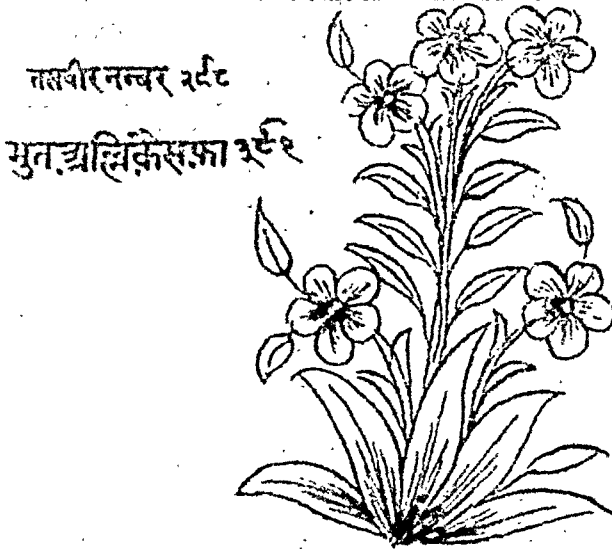 तसबीर नम्बर २९८
मुत.अल्लिक़े सफ़ा ३९१